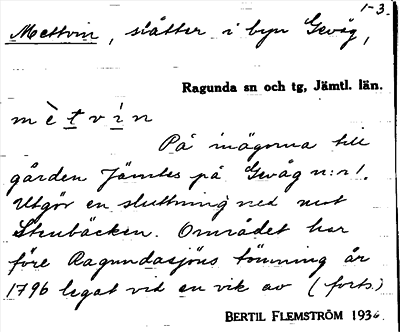 1-3.
Mettvin, slåtter i byn Gevåg,
Ragunda sn och tg, Jämtl. län.
m è t v i n
På inägorna till
gården Jämtes på Gevåg n:r 1.
Utgör en sluttning ned mot
Stenbäcken. Området har
före Ragundasjöns tömning år
1796 legat vid en vik av (forts.)
BERTIL FLEMSTRÖM 1936.